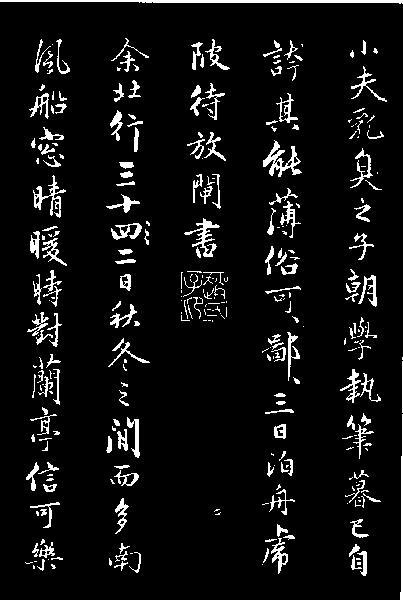 小夫乳臭之子朝學執筆暮已自
誇其能薄俗可〻鄙〻三日泊舟虎
陂待放閘書
趙氏子昂
二
余北行三十四二日秋冬之間而多南
風船窓晴暖時對蘭亭信可樂